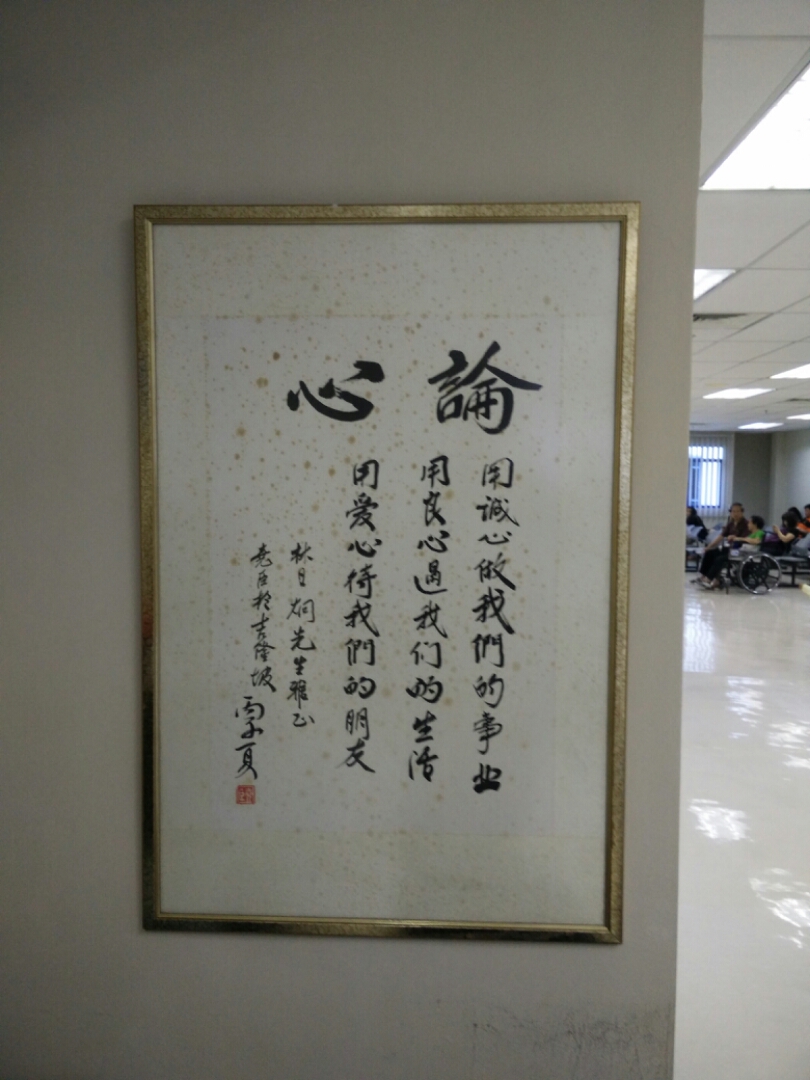 論心
用誠心做我們的事业
用良心過我们的生活
用爱心待我們的朋友
林日炯先生雅正
堯臣於吉隆坡丙子夏